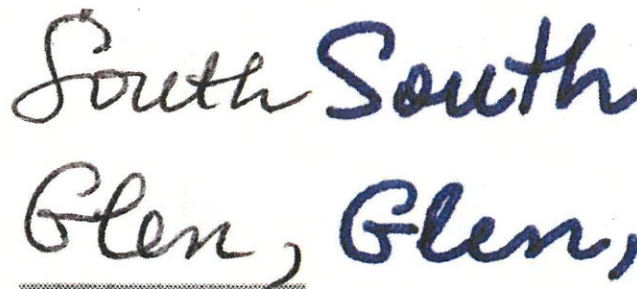 South South
Glen, Glen,